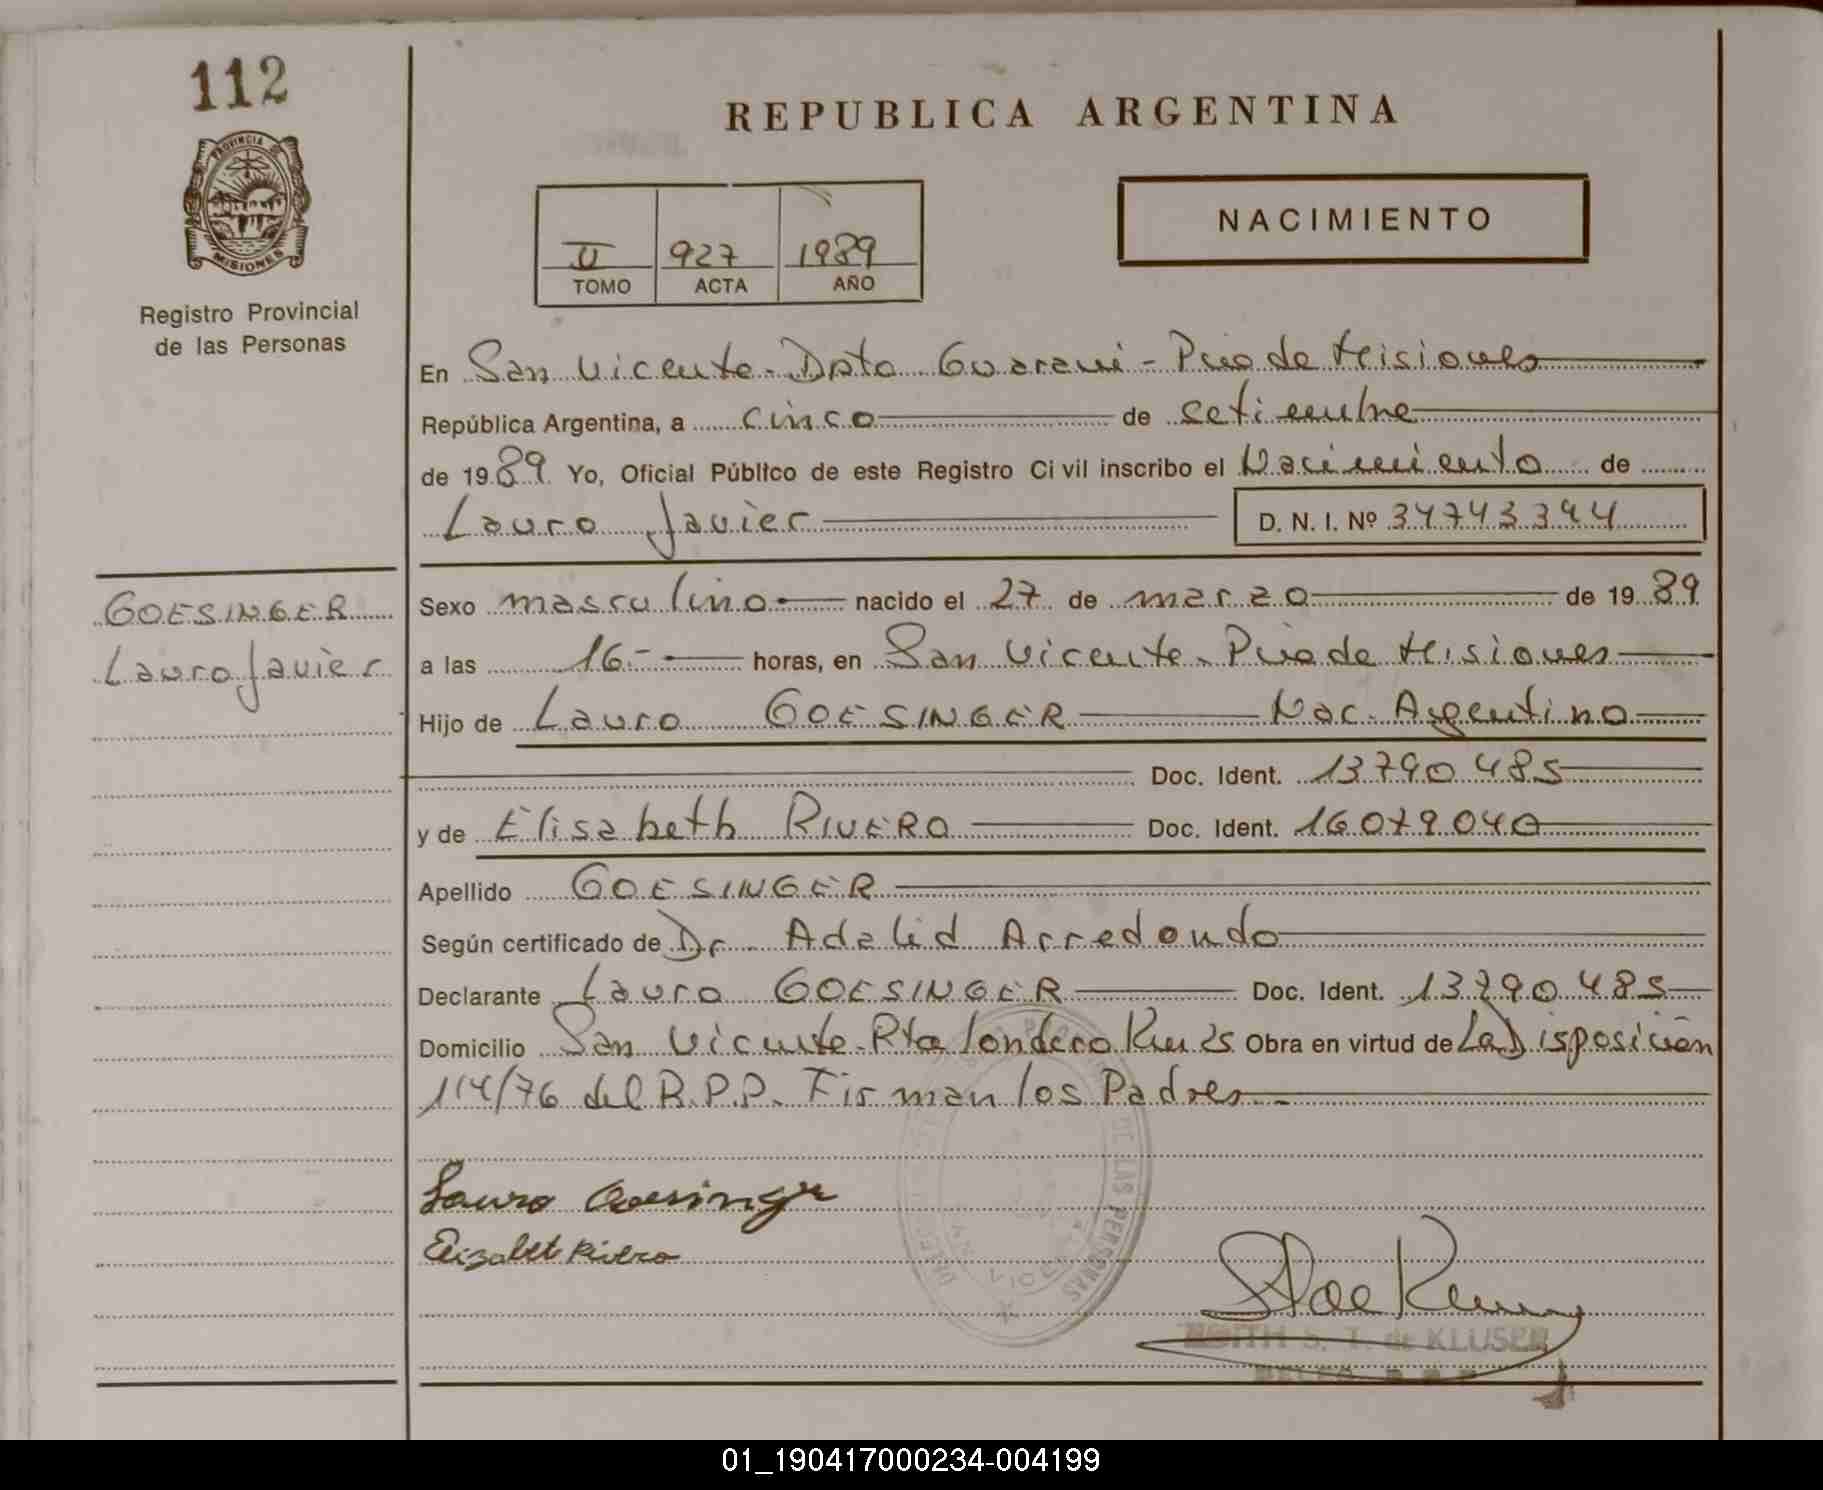 112
PROVINCIA DE
MISIONES
Registro Provincial
de las Personas
REPUBLICA ARGENTINA
NACIMIENTO
II 927 1989
TOMO ACTA AÑO
En San Vicente - Dpto Guaraní - Pcia de Misiones
República Argentina, a cinco de setiembre
de 1989 Yo, Oficial Público de este Registro Civil inscribo el Nacimiento de
Lauro Javier D. N. I. Nº 34743394
GOESINGER
Lauro Javier
Sexo masculino nacido el 27 de marzo de 1989
a las 16.- horas, en San Vicente - Pcia de Misiones
Hijo de Lauro GOESINGER Nac. Argentino
Doc. Ident. 13790485
y de Elisabeth RIVERO Doc. Ident. 16079040
Apellido GOESINGER
Según certificado de Dr. Adalid Arredondo
Declarante Lauro GOESINGER Doc. Ident. 13790485
Domicilio San Vicente - Rta Londero Obra en virtud de La Disposición
114/76 del R.P.P. Firman los Padres.-
Lauro Goesinger
Elizabet Rivero
DE LAS PERSONAS
EDITH S. T. de KLUSER
01_190417000234-004199